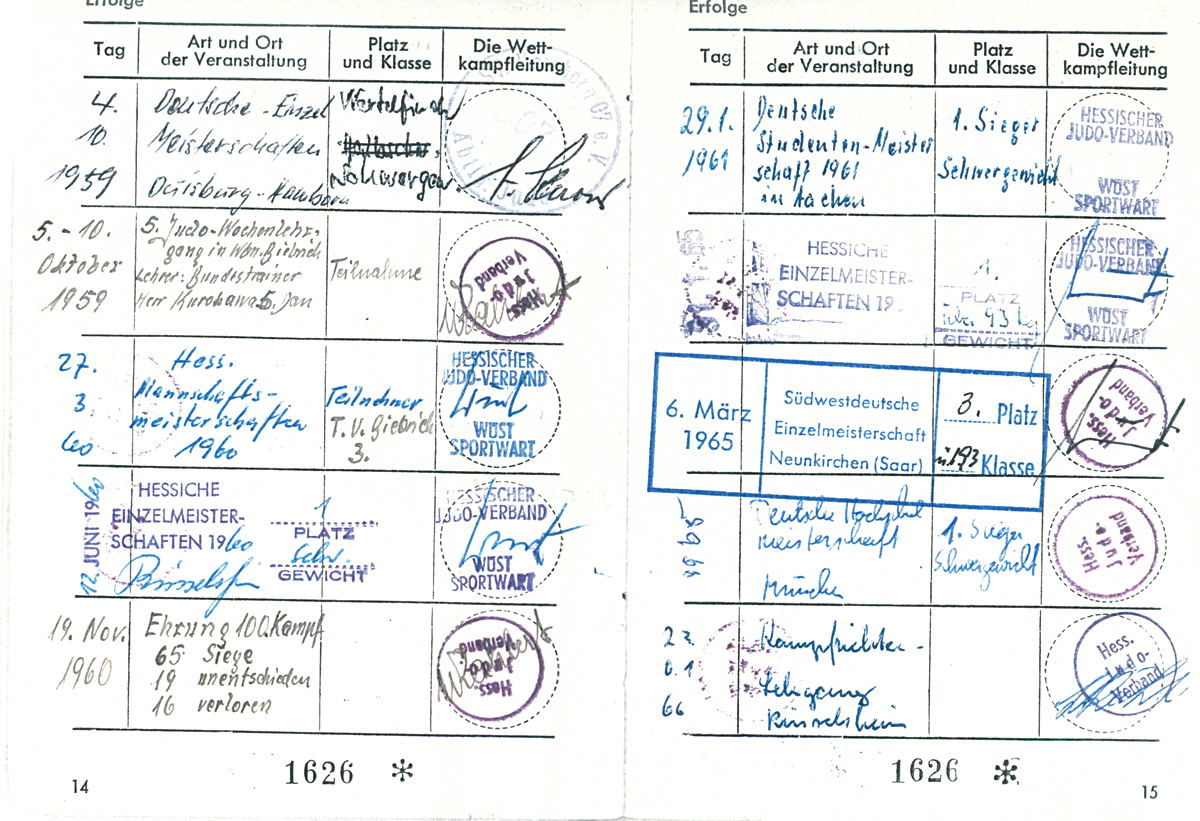 Erfolge
Tag
Art und Ort
der Veranstaltung
Platz
und Klasse
Die Wett-
kampfleitung
4.
10.
1959
Deutsche - Einzel
Meisterschaften
Duisburg - Hamborn
Viertelfinale
5. - 10.
Oktober
1959
5. Judo-Wochenlehr-
gang in Wbn. Biebrich
Lehrer: Bundestrainer
Herr Kurohawa 5. Dan
Teilnahme
Hess.
Judo-
Verband
27.
3.
60
Hess.
Mannschafts-
meisterschaften
1960
Teilnehmer
T.V. Biebrich
3.
HESSISCHER
JUDO-VERBAND
WÜST
SPORTWART
12. JUNI 1960
HESSICHE
EINZELMEISTER-
SCHAFTEN 1960
Rüsselsheim
1
PLATZ
Schw.
GEWICHT
HESSISCHER
JUDO-VERBAND
WÜST
SPORTWART
19. Nov.
1960
Ehrung 100. Kampf
65 Siege
19 unentschieden
16 verloren
Hess.
Judo-
Verband
1626 *
14
Erfolge
Tag
Art und Ort
der Veranstaltung
Platz
und Klasse
Die Wett-
kampfleitung
29.1.
1961
Deutsche
Studenten-Meister
schaft 1961
in Aachen
1. Sieger
Schwergewicht
HESSISCHER
JUDO-VERBAND
WÜST
SPORTWART
HESSICHE
EINZELMEISTER-
SCHAFTEN 19
1.
PLATZ
über 93 kg
GEWICHT
HESSISCHER
JUDO-VERBAND
WÜST
SPORTWART
6. März
1965
Südwestdeutsche
Einzelmeisterschaft
Neunkirchen (Saar)
3. Platz
ü. 93 Klasse
Hess.
Judo-
Verband
Deutsche Hochschul
meisterschaft
München
1. Sieger
Schwergewicht
Hess.
Judo-
Verband
23
01
66
Kampfrichter-
Lehrgang
Rüsselsheim
Hess.
Judo-
Verband
1626 *
15